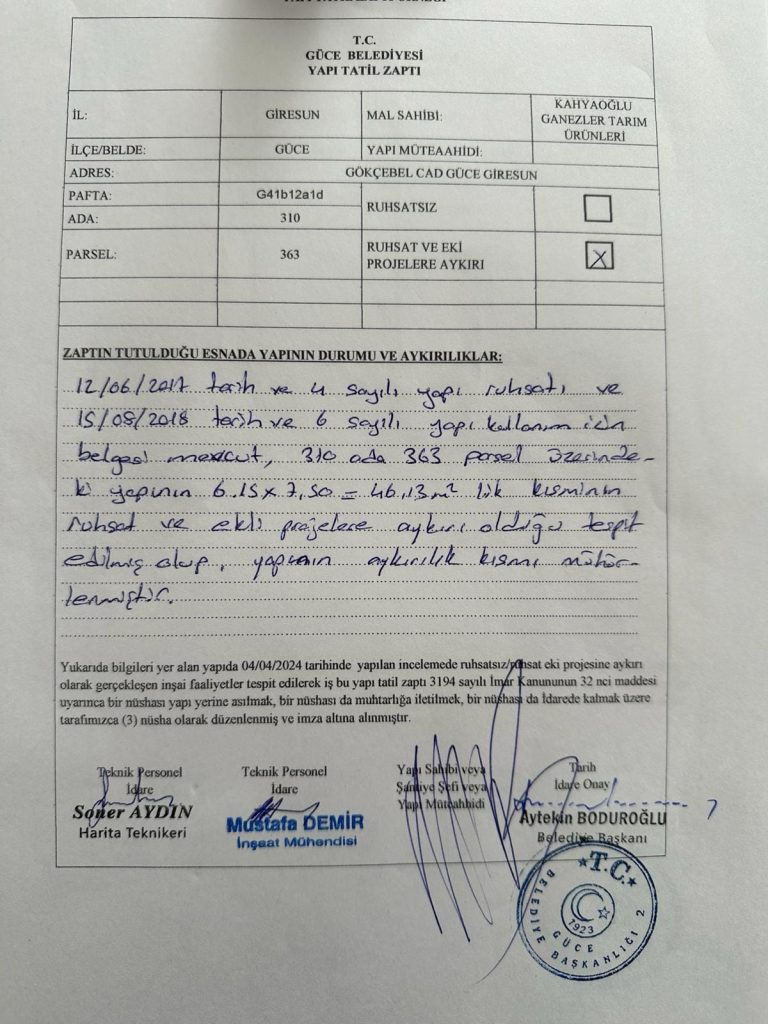 T.C.
GÜCE BELEDİYESİ
YAPI TATİL ZAPTI
İL: GİRESUN MAL SAHİBİ: KAHYAOĞLU GANEZLER TARIM ÜRÜNLERİ
İLÇE/BELDE: GÜCE YAPI MÜTEAAHİDİ:
ADRES: GÖKÇEBEL CAD GÜCE GİRESUN
PAFTA: G41b12a1d
RUHSATSIZ
ADA: 310
PARSEL: 363 RUHSAT VE EKİ PROJELERE AYKIRI X
ZAPTIN TUTULDUĞU ESNADA YAPININ DURUMU VE AYKIRILIKLAR:
12/06/2017 tarih ve 4 sayılı yapı ruhsatı ve
15/08/2018 tarih ve 6 sayılı yapı kullanım izin
belgesi mevcut, 310 ada 363 parsel üzerinde-
ki yapının 6.15x7,50 = 46,13m² lik kısmının
ruhsat ve ekli projelere aykırı olduğu tespit
edilmiş olup, yapının aykırılık kısmı mühür-
lenmiştir.
Yukarıda bilgileri yer alan yapıda 04/04/2024 tarihinde yapılan incelemede ruhsatsız/ruhsat eki projesine aykırı
olarak gerçekleşen inşai faaliyetler tespit edilerek iş bu yapı tatil zaptı 3194 sayılı İmar Kanununun 32 nci maddesi
uyarınca bir nüshası yapı yerine asılmak, bir nüshası da muhtarlığa iletilmek, bir nüshası da İdarede kalmak üzere
tarafımızca (3) nüsha olarak düzenlenmiş ve imza altına alınmıştır.
Teknik Personel
İdare
Soner AYDIN
Harita Teknikeri
Teknik Personel
İdare
Mustafa DEMİR
İnşaat Mühendisi
Yapı Sahibi veya
Şantiye Şefi veya
Yapı Müteahhidi
Tarih
İdare Onay
Aytekin BODUROĞLU
Belediye Başkanı
T.C.
GÜCE
BELEDİYE BAŞKANLIĞI 2
1923